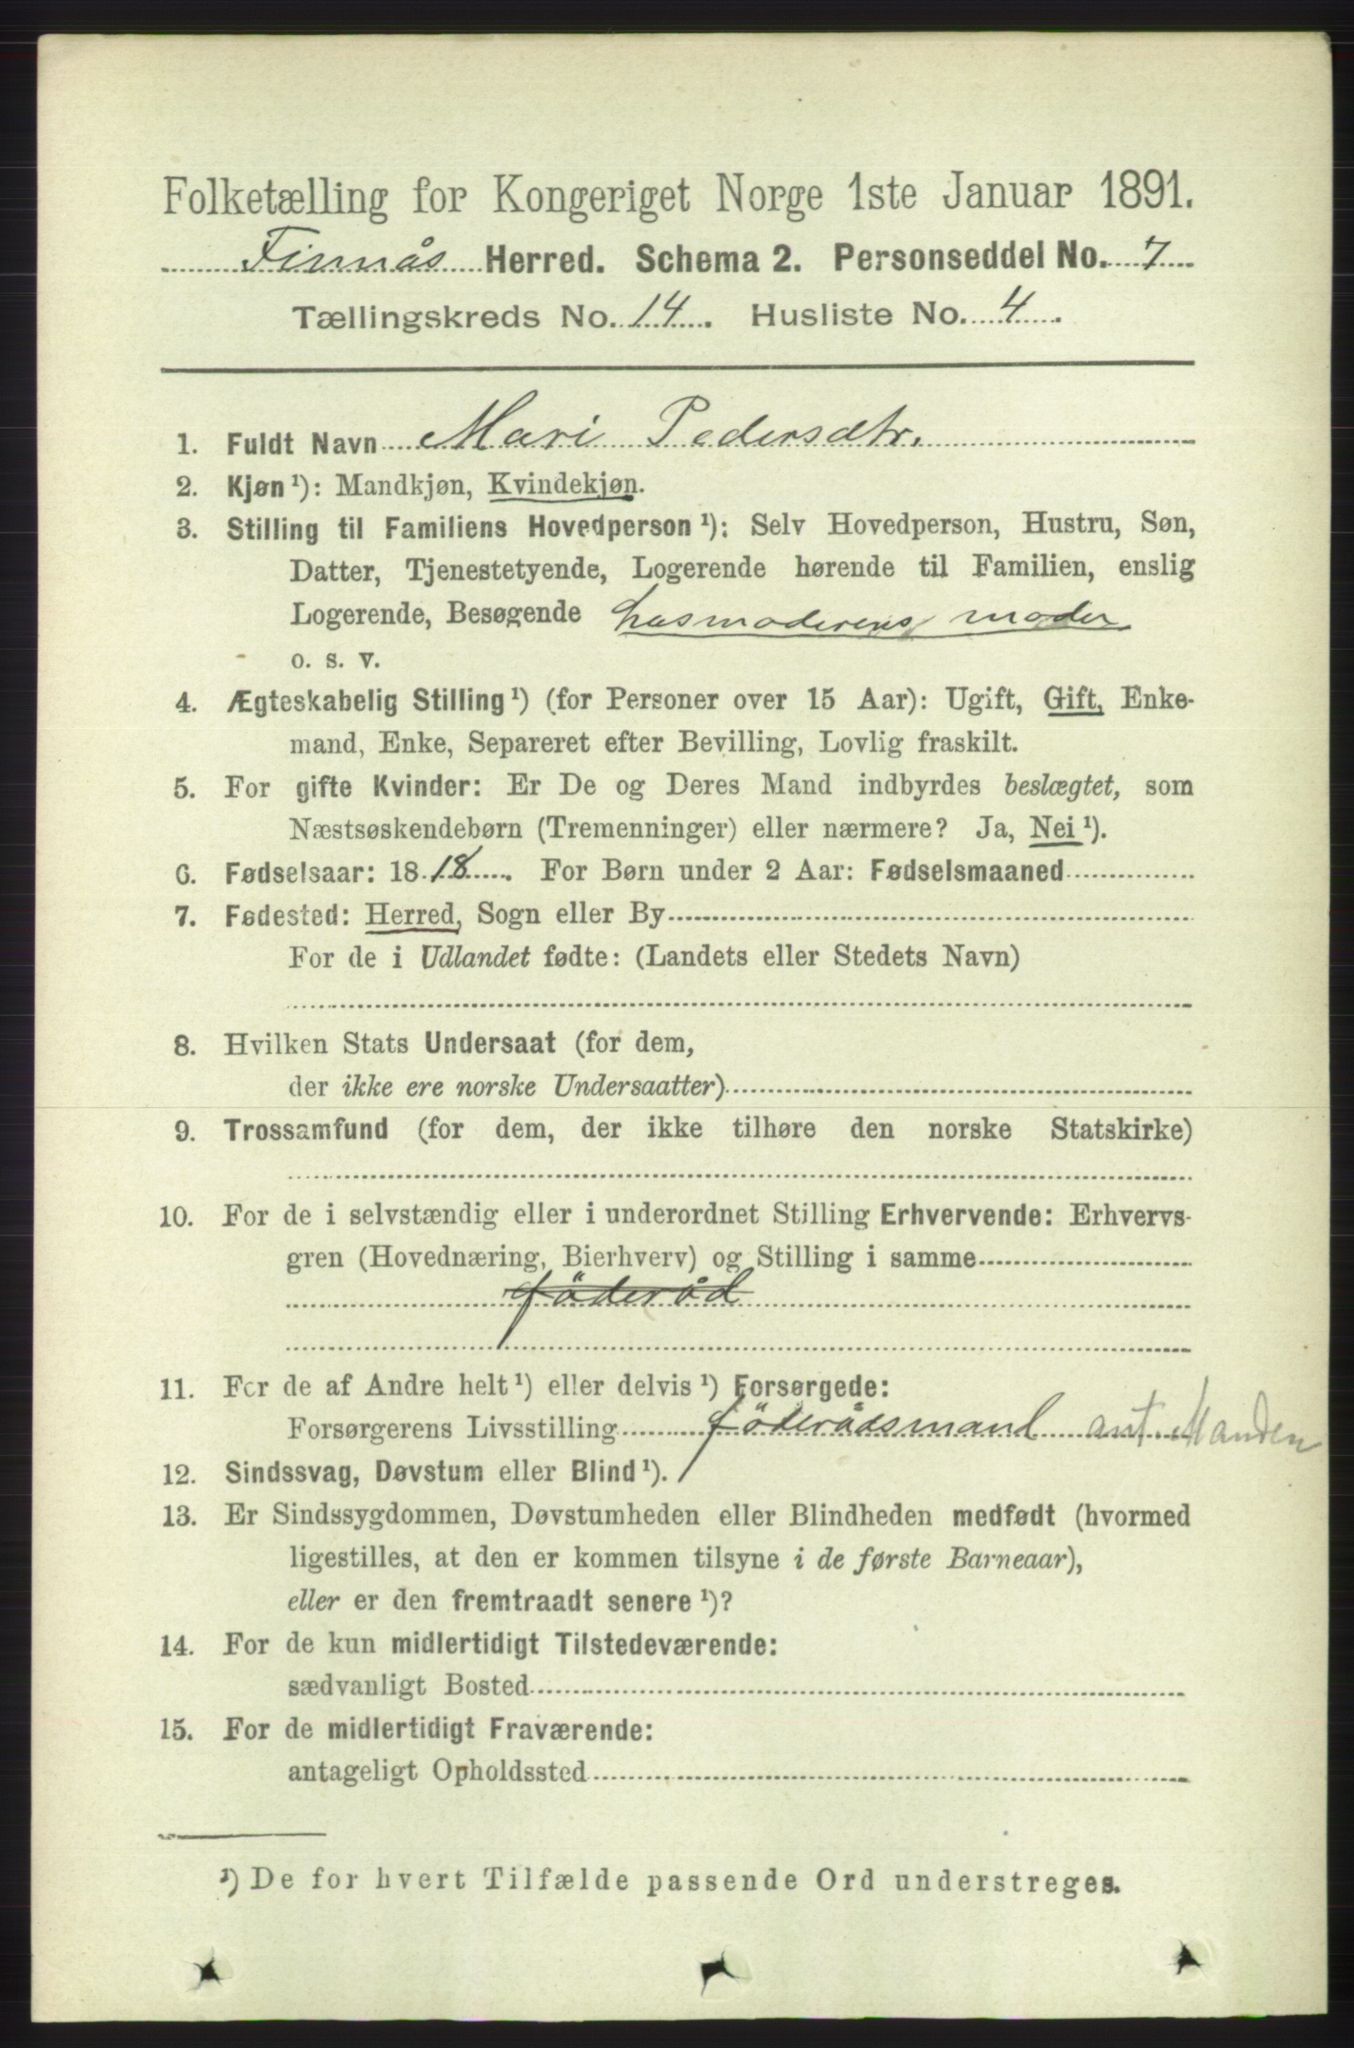 Folketælling for Kongeriget Norge 1ste Januar 1891.
Finnås Herred. Schema 2. Personseddel No. 7
Tællingskreds No. 14. Husliste No. 4.
1. Fuldt Navn Mari Pedersdtr.
2. Kjøn¹): Mandkjøn, Kvindekjøn.
3. Stilling til Familiens Hovedperson¹): Selv Hovedperson, Hustru, Søn,
Datter, Tjenestetyende, Logerende hørende til Familien, enslig
Logerende, Besøgende husmoderens moder
o. s. v.
4. Ægteskabelig Stilling¹) (for Personer over 15 Aar): Ugift, Gift, Enke-
mand, Enke, Separeret efter Bevilling, Lovlig fraskilt.
5. For gifte Kvinder: Er De og Deres Mand indbyrdes beslægtet, som
Næstsøskendebørn (Tremenninger) eller nærmere? Ja, Nei¹).
6. Fødselsaar: 1818. For Børn under 2 Aar: Fødselsmaaned
7. Fødested: Herred, Sogn eller By
For de i Udlandet fødte: (Landets eller Stedets Navn)
8. Hvilken Stats Undersaat (for dem,
der ikke ere norske Undersaatter)
9. Trossamfund (for dem, der ikke tilhøre den norske Statskirke)
10. For de i selvstændig eller i underordnet Stilling Erhvervende: Erhvervs-
gren (Hovednæring, Bierhverv) og Stilling i samme
föderåd
11. For de af Andre helt¹) eller delvis¹) Forsørgede:
Forsørgerens Livsstilling föderådsmand ant. Manden
12. Sindssvag, Døvstum eller Blind¹).
13. Er Sindssygdommen, Døvstumheden eller Blindheden medfødt (hvormed
ligestilles, at den er kommen tilsyne i de første Barneaar),
eller er den fremtraadt senere¹)?
14. For de kun midlertidigt Tilstedeværende:
sædvanligt Bosted
15. For de midlertidigt Fraværende:
antageligt Opholdssted
¹) De for hvert Tilfælde passende Ord understreges.